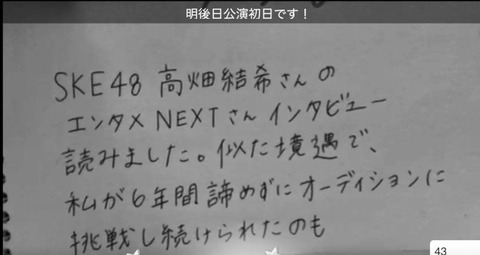 明後日公演初日です！
SKE48 高畑結希さんの
エンタメNEXTさんインタビュー
読みました。似た境遇で、
私が6年間諦めずにオーディションに
挑戦し続けられたのも
43